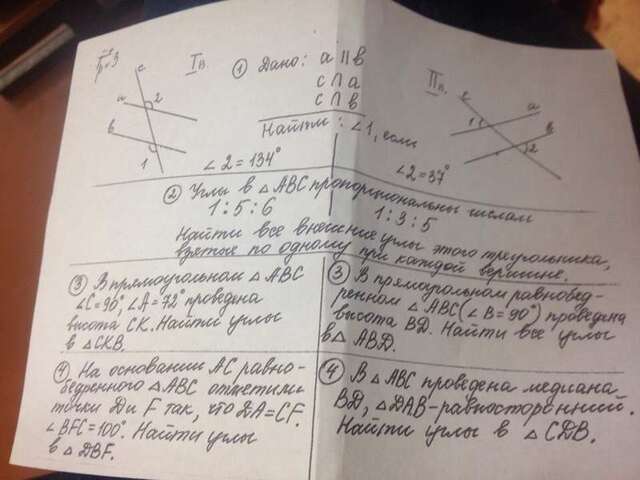 Iв.
① Дано: a || b
c ∩ a
c ∩ b
Найти: ∠1, если
c
a
2
b
1
∠2 = 134°
IIв.
c
a
1
b
2
∠2 = 37°
② Углы в △ ABC пропорциональны числам
1 : 5 : 6
1 : 3 : 5
Найти все внешние углы этого треугольника,
взятые по одному при каждой вершине.
③ В прямоугольном △ ABC
∠C = 90°, ∠A = 72° проведена
высота CK. Найти углы
в △CKB.
③ В прямоугольном равнобед-
ренном △ ABC (∠B = 90°) проведена
высота BD. Найти все углы
в △ ABD.
④ На основании AC равно-
бедренного △ABC отметили
точки D и F так, что DA = CF.
∠BFC = 100°. Найти углы
в △DBF.
④ В △ ABC проведена медиана
BD, △DAB - равносторонний.
Найти углы в △ CDB.